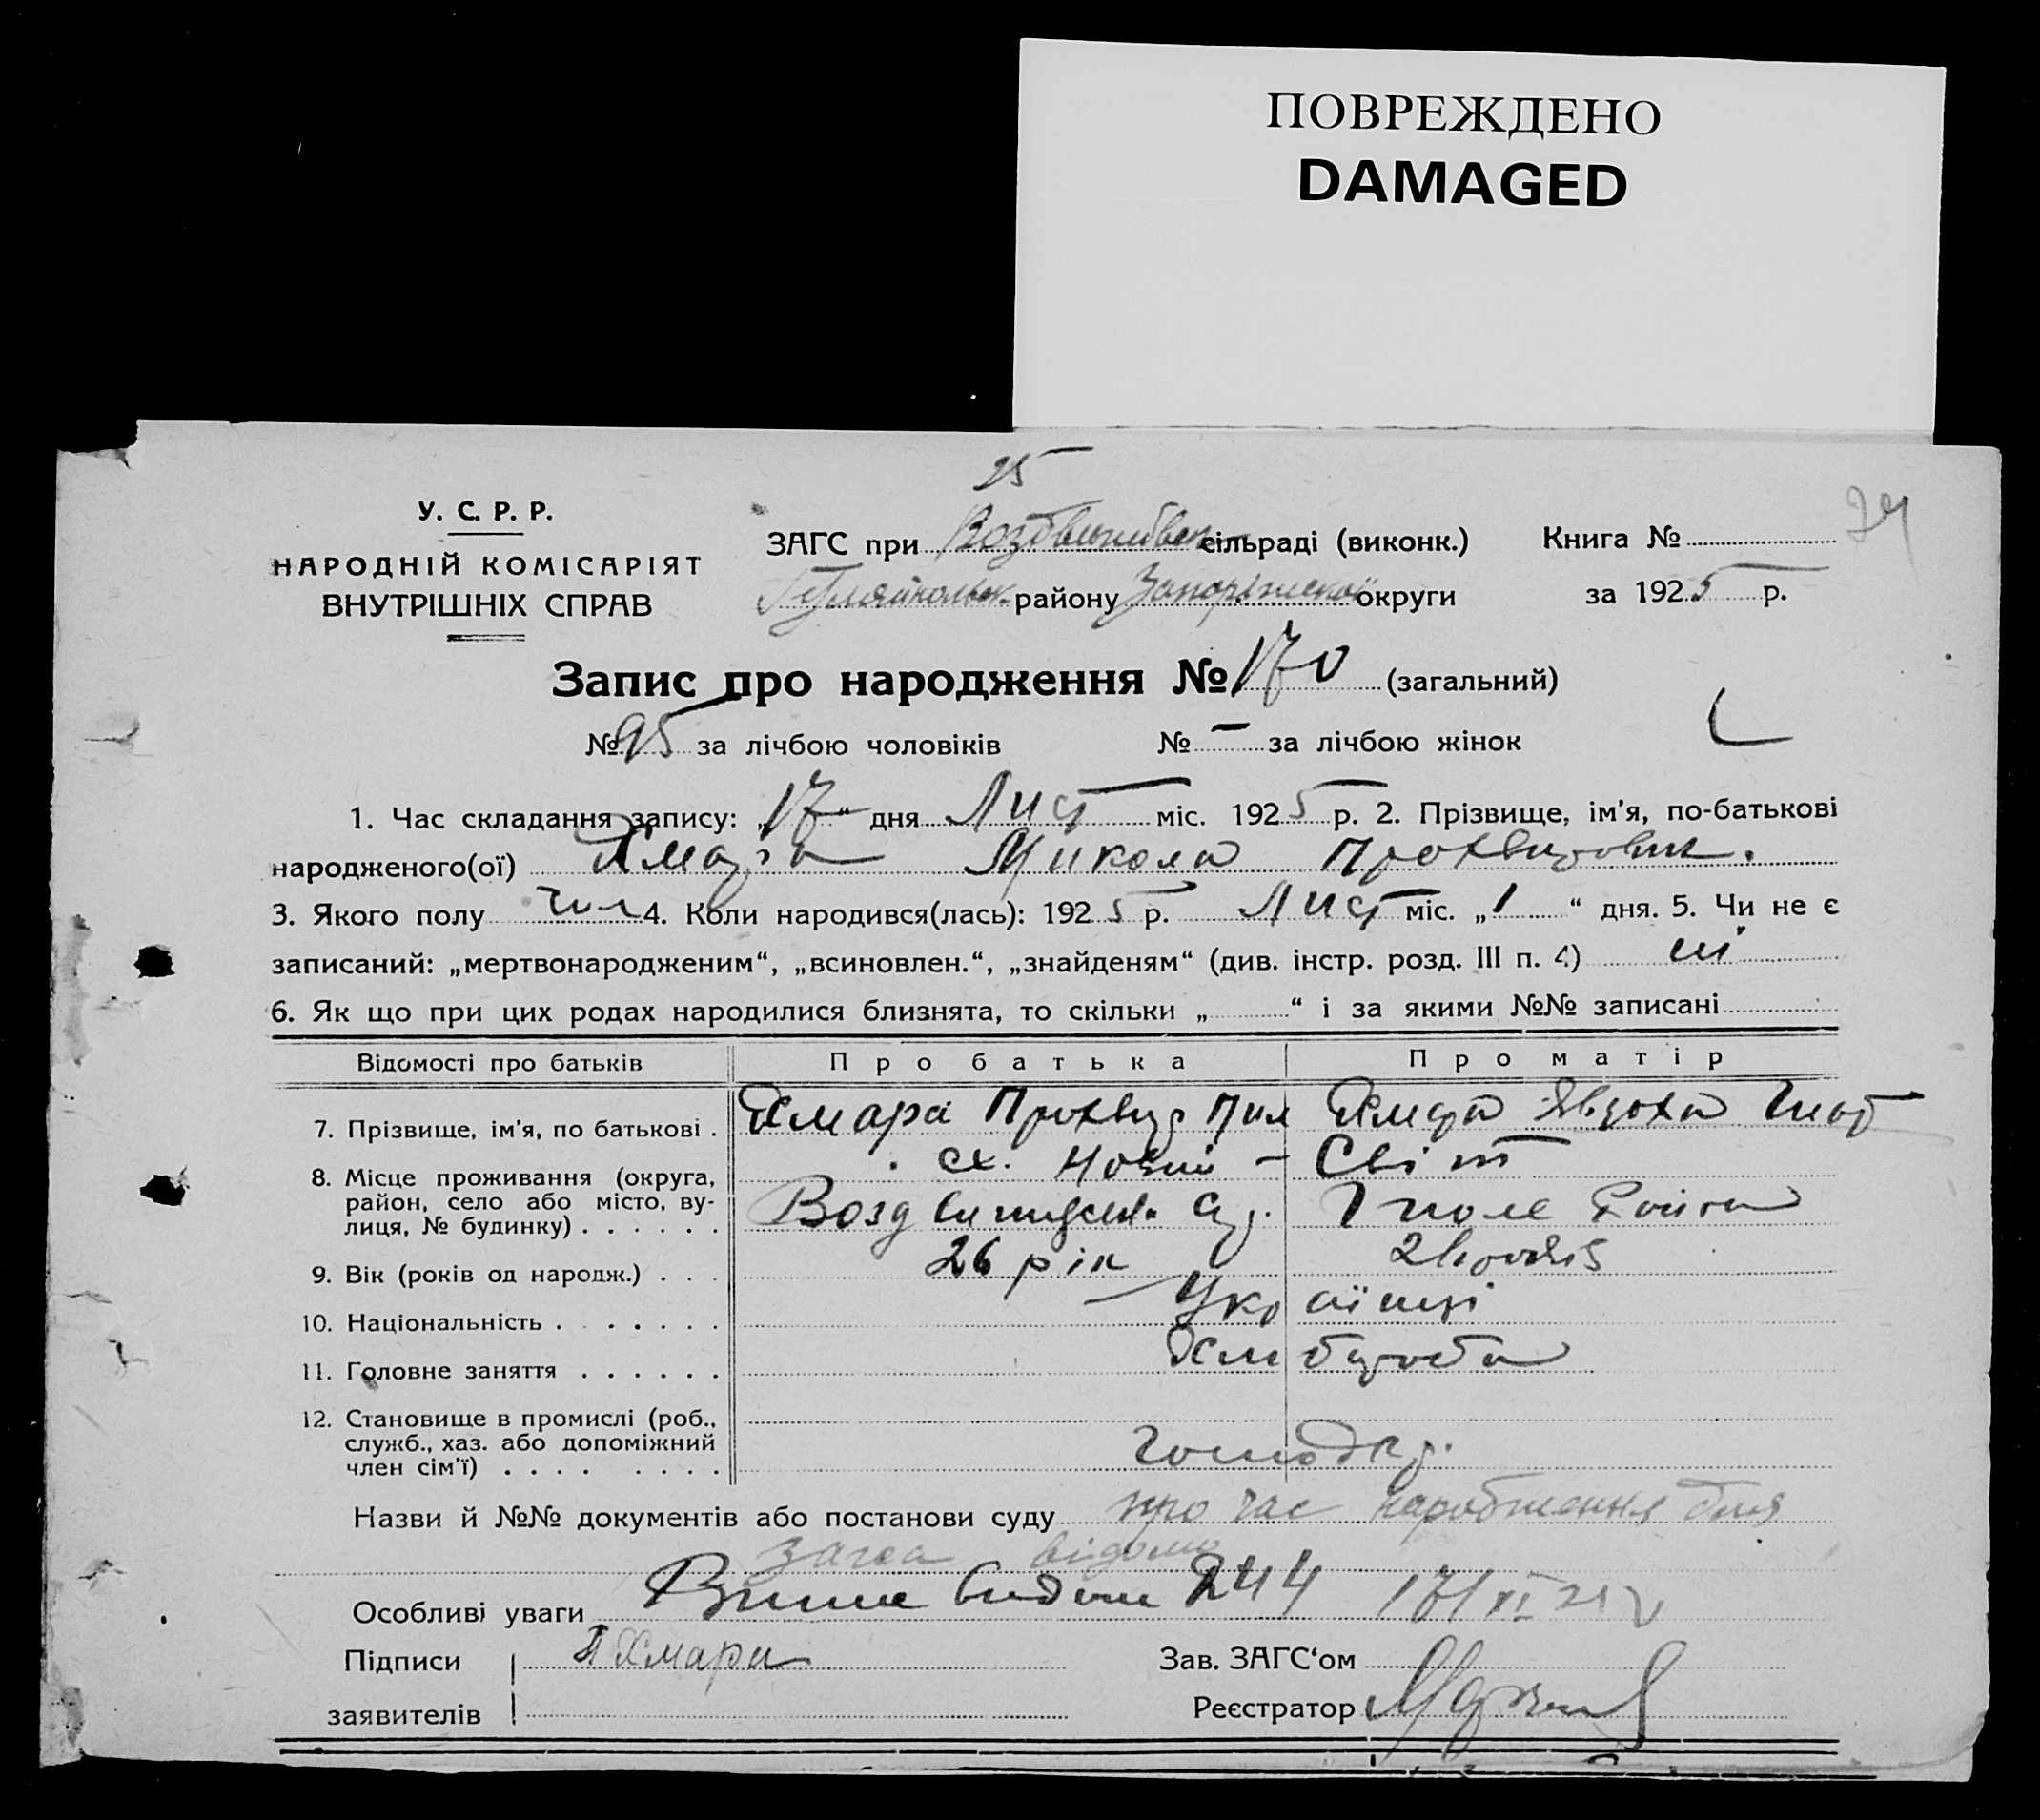 ПОВРЕЖДЕНО
DAMAGED
25
24
У. С. Р. Р.
НАРОДНІЙ КОМІСАРІЯТ
ВНУТРІШНІХ СПРАВ
ЗАГС при Воздвижівськ сільраді (виконк.) Книга №
Гуляйпольськ. району Запоріжської округи за 1925 р.
Запис про народження № 170 (загальний)
№ 95 за лічбою чоловіків № — за лічбою жінок
1. Час складання запису: „17“ дня Лист міс. 1925 р. 2. Прізвище, ім'я, по-батькові
народженого(ої) Хмара Микола Прохвирович.
3. Якого полу чол 4. Коли народився(лась): 1925 р. Лист міс. „1“ дня. 5. Чи не є
записаний: „мертвонародженим“, „всиновлен.“, „знайденям“ (див. інстр. розд. III п. 4) ні
6. Як що при цих родах народилися близнята, то скільки „ “ і за якими №№ записані
Відомості про батьків Про батька Про матір
7. Прізвище, ім'я, по батькові . Хмара Прохвир Пил Хмара Явдоха Гнат
8. Місце проживання (округа, район, село або місто, вулиця, № будинку) . . . . . . сх. Новий - Світ
Воздвижеськ. с/р. Гполе Району
9. Вік (років од народж.) . . . 26 рік 21
10. Національність . . . . . . . Українці
11. Головне заняття . . . . . . Хліборобо
12. Становище в промислі (роб., служб., хаз. або допоміжний член сім'ї) . . . . . . . . господар.
Назви й №№ документів або постанови суду про час народження для
загса відомо
Особливі уваги Витяг видан 244 17/XI 25
Підписи П Хмара Зав. ЗАГС'ом
заявителів Реєстратор